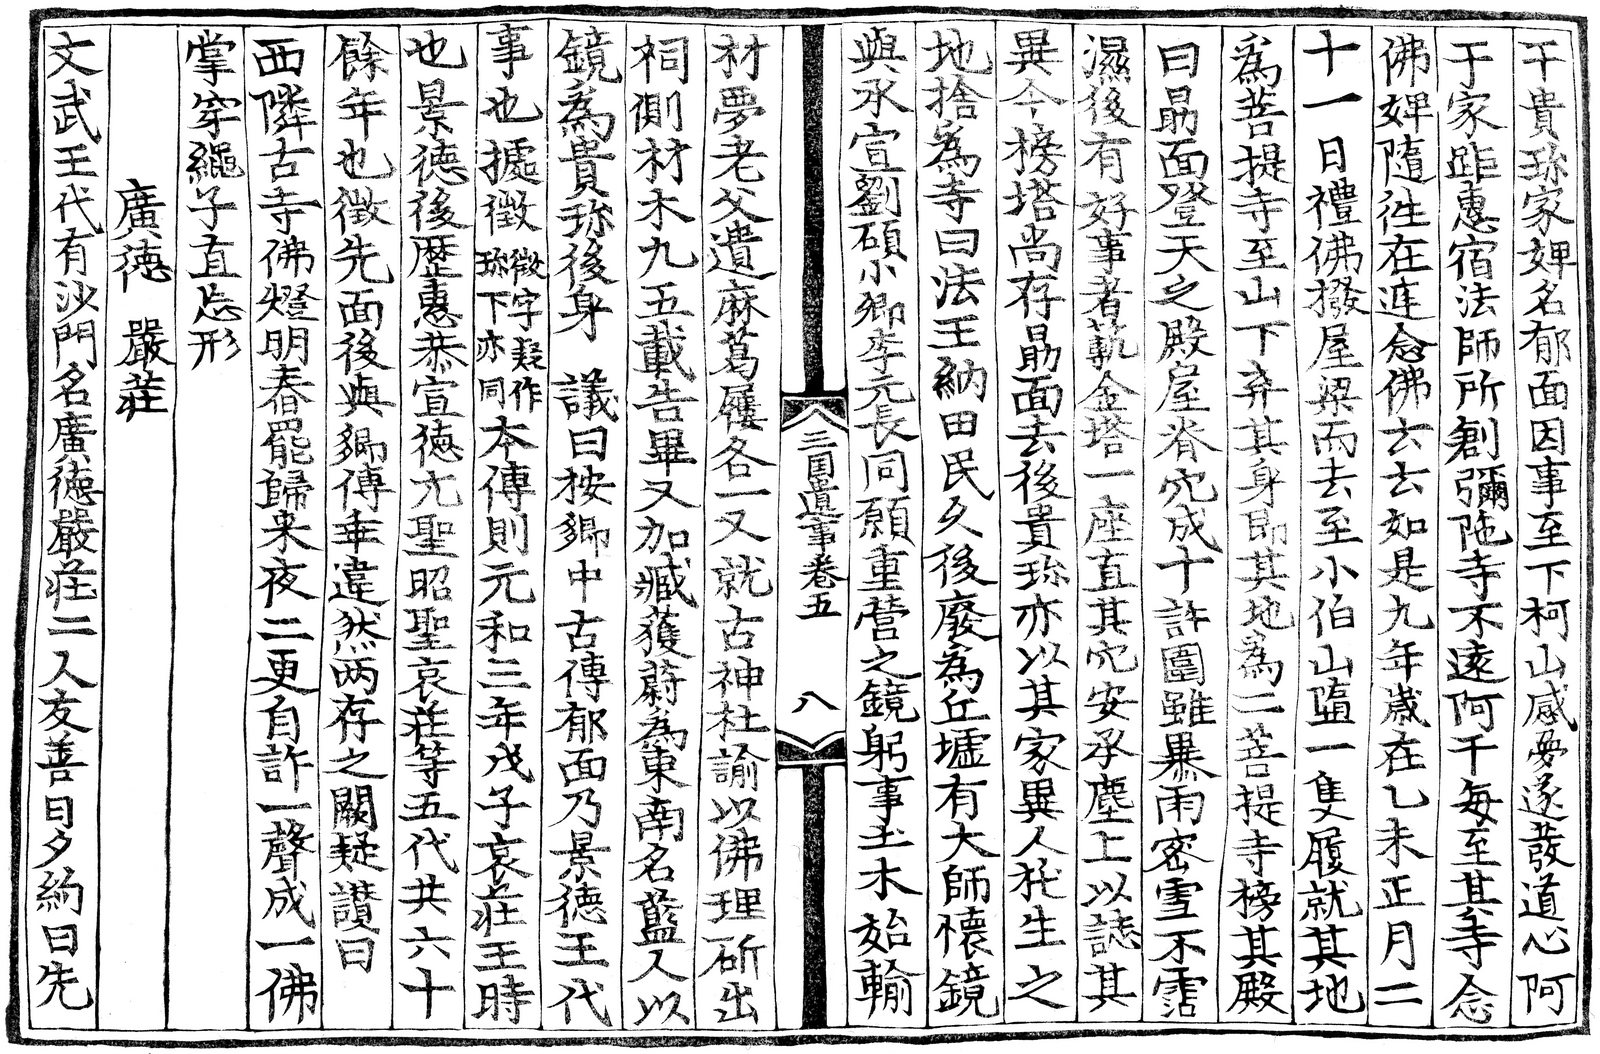 干貴珎家婢名郁面因事至下柯山感夢遂發道心阿
干家距惠宿法師所創彌陁寺不遠阿干每至其寺念
佛婢隨往在庭念佛云云如是九年歲在乙未正月二
十一日禮佛撥屋梁而去至小伯山墮一隻履就其地
爲菩提寺至山下弃其身即其地爲二菩提寺榜其殿
曰勗面登天之殿屋脊穴成十許圍雖暴雨密雪不霑
濕後有好事者範金塔一座直其穴安承塵上以誌其
異今榜塔尚存勗面去後貴珎亦以其家異人托生之
地捨爲寺曰法王納田民久後廢爲丘墟有大師懷鏡
與承宣劉碩小卿李元長同願重營之鏡躬事土木始輸
三国遺事卷五 八
材夢老父遺麻葛屨各一又就古神社諭以佛理斫出
祠側材木凢五載告畢又加臧獲蔚爲東南名藍人以
鏡爲貴珎後身 議曰按鄉中古傳郁面乃景德王代
事也據徵 徵字疑作珎下亦同 本傳則元和三年戊子哀莊王時
也景德後歷惠恭宣德元聖昭聖哀莊等五代共六十
餘年也徵先面後與鄉傳乖違然两存之闕疑讃曰
西隣古寺佛燈明春罷歸来夜二更自許一聲成一佛
掌穿繩子直忘形
廣德 嚴莊
文武王代有沙門名廣德嚴莊二人友善日夕約曰先